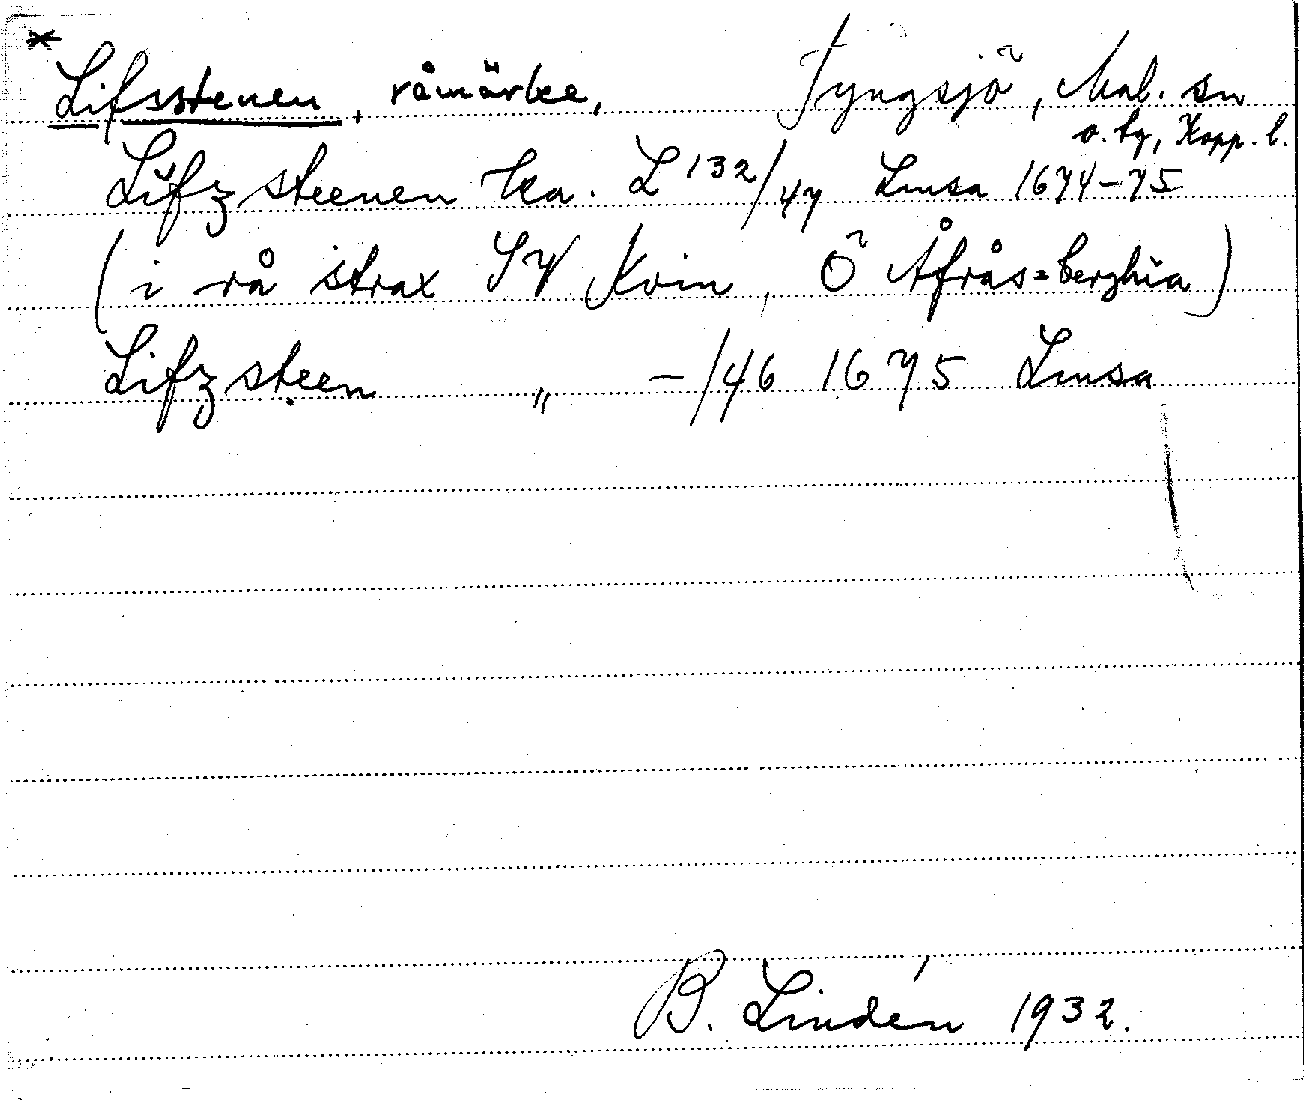 *
Lifsstenen, råmärke, Tyngsjö, Mal. sn
o. tg, Kopp. l.
Lifzsteenen Ka. L 132/47 Lmsa 1674-75
(i rå strax SV Kvin, Ö Åfrås=berghia)
Lifzsteen „ -/46 1675 Lmsa
B. Lindén 1932.